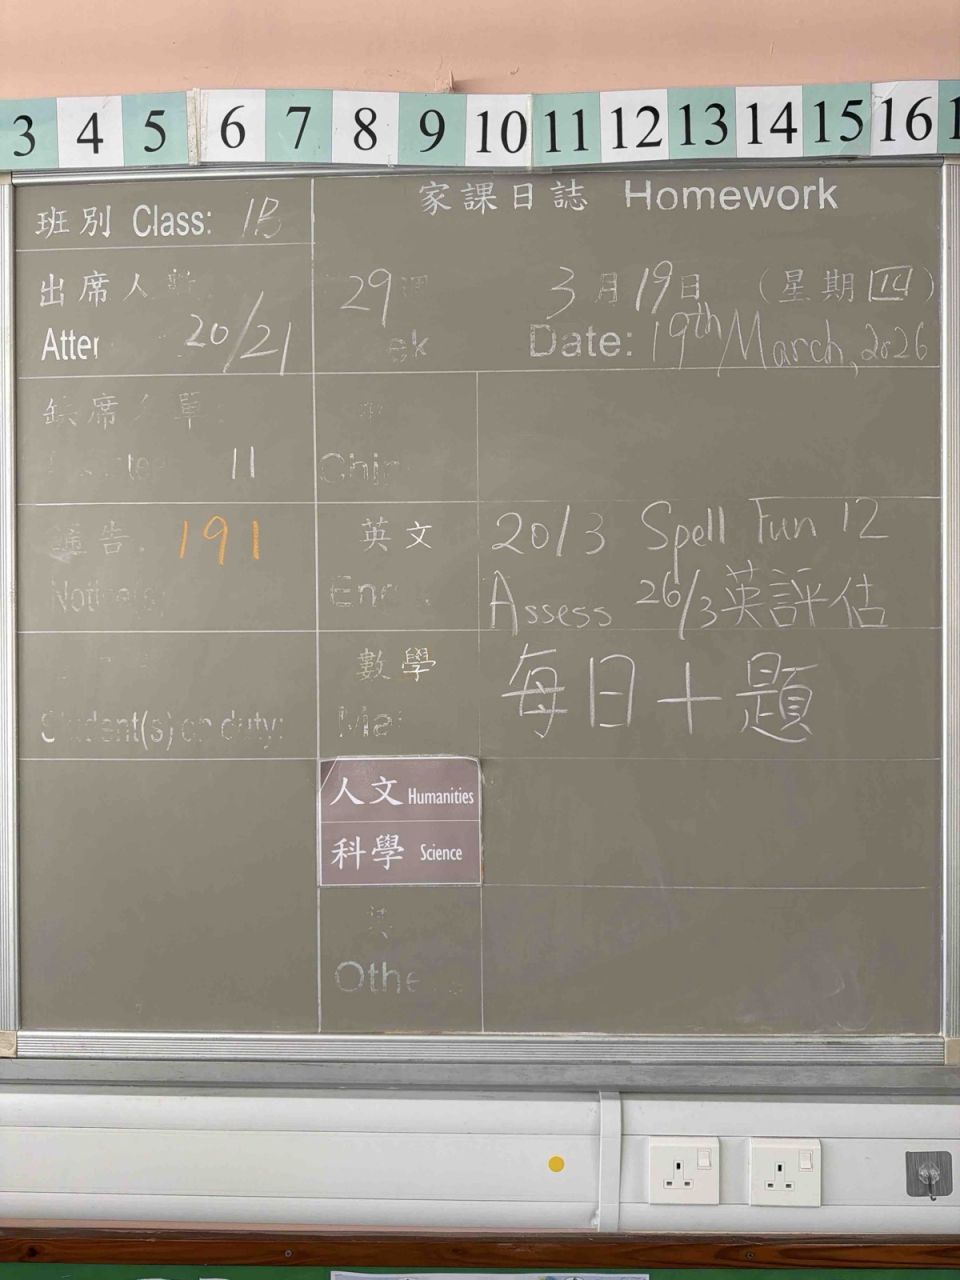 3 4 5 6 7 8 9 10 11 12 13 14 15 16
班別 Class: 1B
家課日誌 Homework
出席人數
20/21
29週
3月19日 (星期四)
Date: 19th March, 2026
缺席名單:
11
Chin
通告: 191
Notice(s)
英文
20/3 Spell Fun 12
Assess 26/3英評估
數學
每日十題
Student(s) on duty:
人文 Humanities
科學 Science
其
Othe